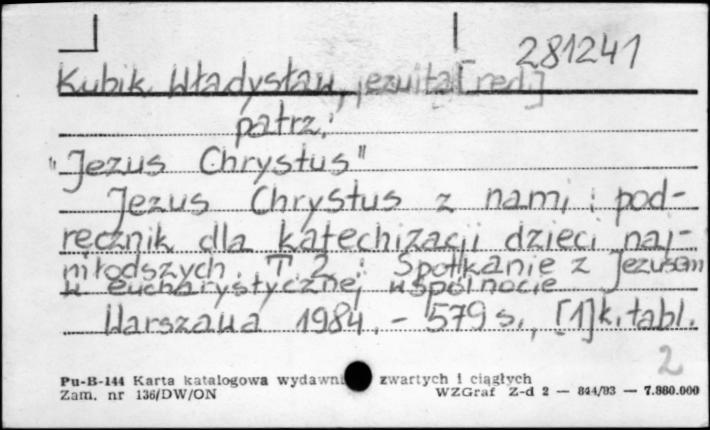 281241
Kubik Władysław, jezuita [red.]
patrz:
"Jezus Chrystus"
Jezus Chrystus z nami : pod-
ręcznik dla katechizacji dzieci naj-
młodszych. T. 2 : Spotkanie z Jezusem
w eucharystycznej wspólnocie
Warszawa 1984. - 579 s., [1] k. tabl.
2
Pu-B-144 Karta katalogowa wydawni zwartych i ciągłych
Zam. nr 136/DW/ON WZGraf Z-d 2 — 844/83 — 7.880.000